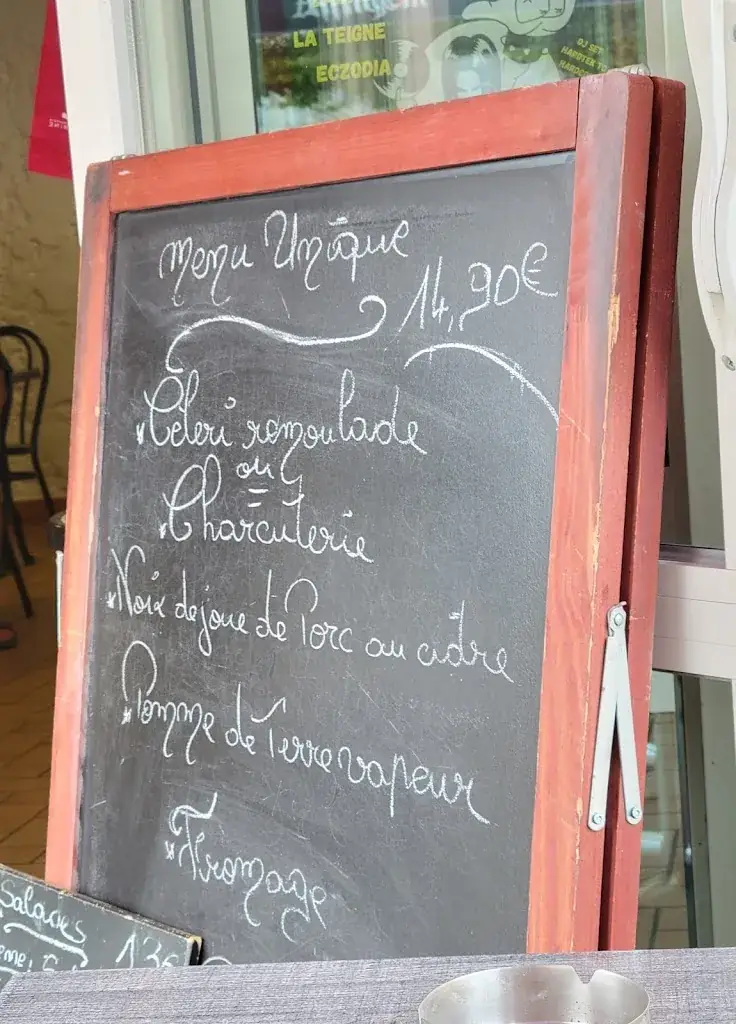 LA TEIGNE
ECZODIA
DJ SET
Menu Unique
14,90€
Céleri remoulade
ou
Charcuterie
Noix de joue de Porc au cidre
Pomme de Terre vapeur
Fromage
Salades
13€